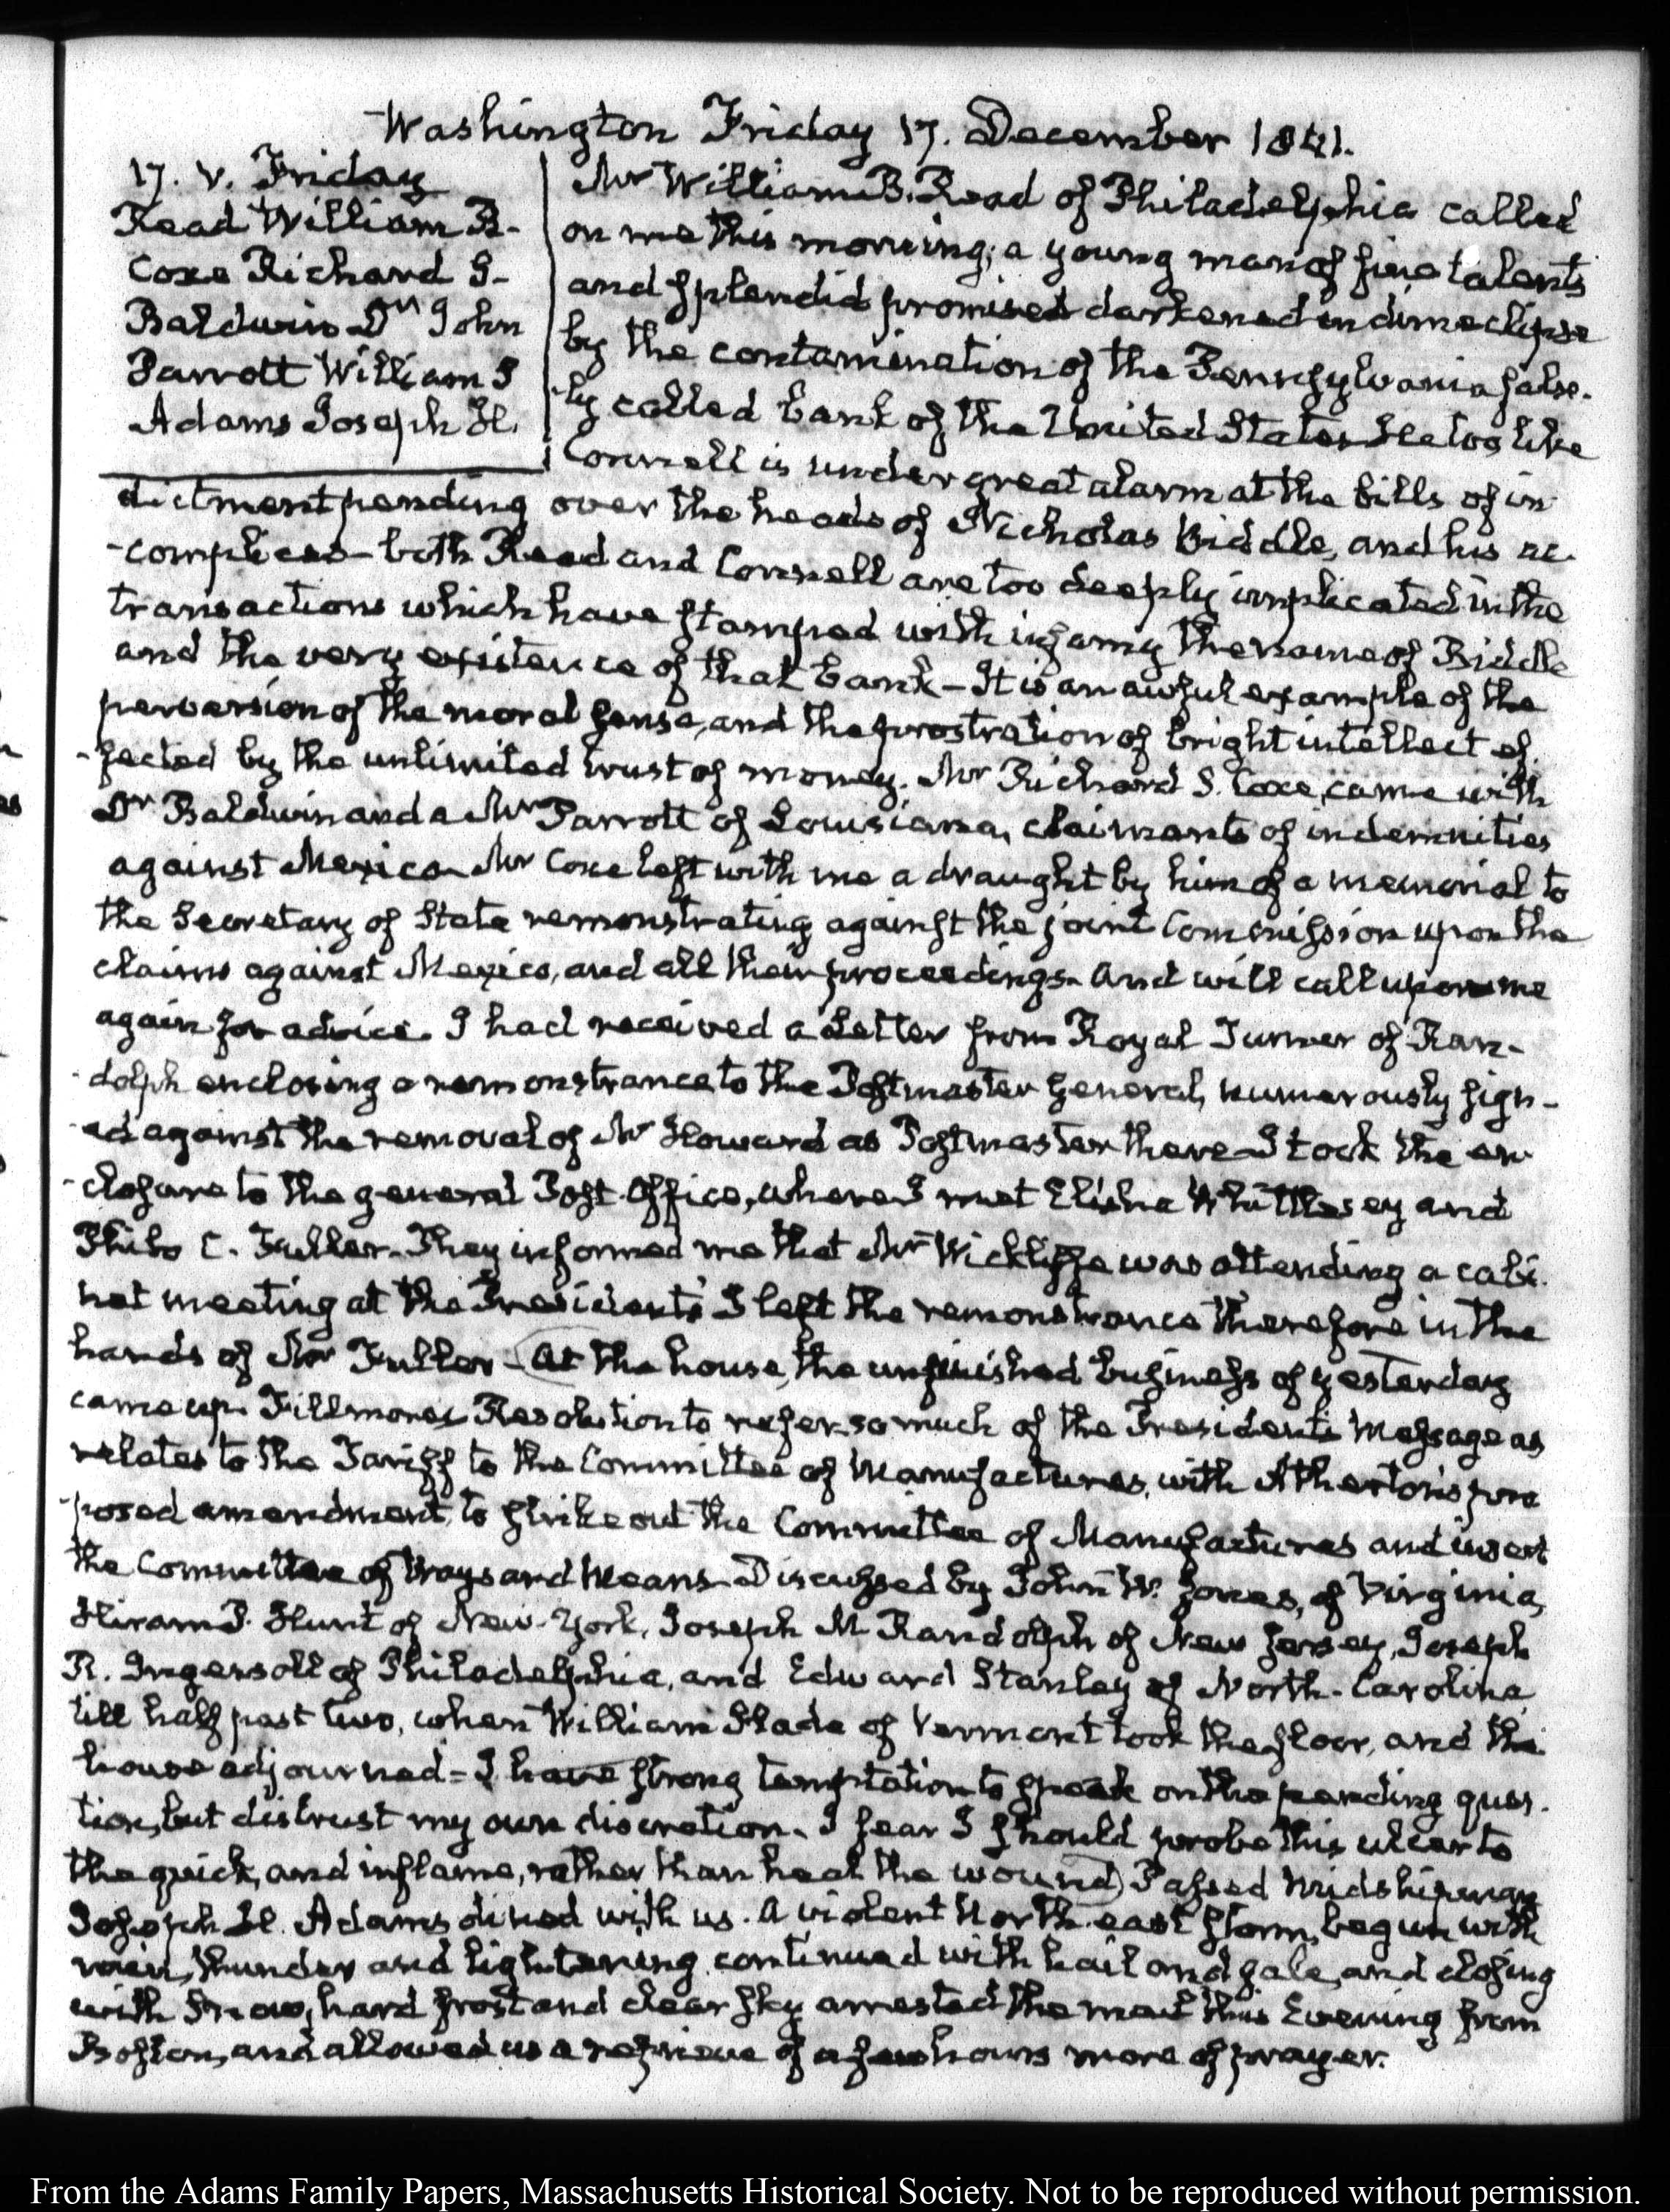 Washington Friday 17. December 1841.
17. V. Friday
Read William B-
Coxe Richard S-
Baldwin Dr. John
Parrott William S
Adams Joseph H.
Mr William B. Read of Philadelphia called
on me this morning; a young man of fine talents
and splendid promise darkened in dim eclipse
by the contamination of the Pennsylvania false-
-ly called bank of the United States He too like
Connell is under great alarm at the bills of in
dictment pending over the heads of Nicholas Biddle, and his ac-
-complices- both Read and Connell are too deeply implicated in the
transactions which have stamped with infamy the name of Biddle
and the very existence of that bank- It is an awful example of the
perversion of the moral sense, and the prostration of bright intellect ef-
-fected by the unlimited trust of money. Mr Richard S. Coxe, came with
Dr Baldwin and a Mr Parrott of Louisiana, claimants of indemnities
against Mexico- Mr Coxe left with me a draught by him of a memorial to
the Secretary of State remonstrating against the joint Commission upon the
claims against Mexico, and all their proceedings- And will call upon me
again for advice. I had received a Letter from Royal Turner of Ran-
-dolph enclosing a remonstrance to the Postmaster General, numerously sign-
-ed against the removal of Mr Howard as Postmaster there- I took the en-
-closure to the general Post-Office, where I met Elisha Whittlesey and
Philo C. Fuller- They informed me that Mr Wickliffe was attending a cabi-
net meeting at the President's I left the remonstrance therefore in the
hands of Mr Fuller- At the house, the unfinished business of yesterday
came up. Fillmore's Resolution to refer so much of the President's Message as
relates to the Tariff to the Committee of Manufactures, with Atherton's pro
-posed amendment, to strike out the Committee of Manufactures and insert
the Committee of Ways and Means- Discussed by John W. Jones, of Virginia,
Hiram P. Hunt of New-York, Joseph M Randolph of New Jersey, Joseph
R. Ingersoll of Philadelphia, and Edward Stanley of North-Carolina
till half past two, when William Slade of Vermont took the floor, and the
house adjourned= I have strong temptation to speak on the pending ques-
tion, but distrust my own discretion. I fear I should probe this ulcer to
the quick, and inflame, rather than heal the wound) Passed Midshipman
Joseph H. Adams dined with us. A violent North-east storm, begun with
rain, thunder and lightening, continued with hail and gale, and closing
with Snow, hard frost and clear sky arrested the mail this Evening from
Boston, and allowed us a reprieve of a few hours more of prayer.
From the Adams Family Papers, Massachusetts Historical Society. Not to be reproduced without permission.